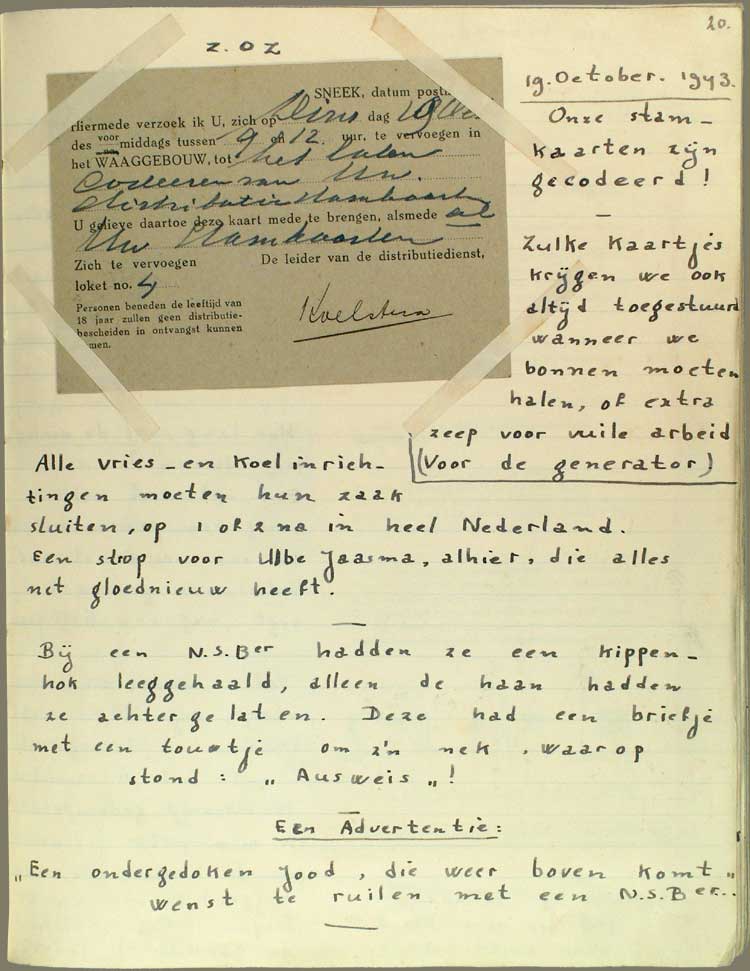 20.
Z.OZ
SNEEK, datum post
Hiermede verzoek ik U, zich op Dins dag 19 Oct.
des voormiddags tussen 9 & 12. uur, te vervoegen in
het WAAGGEBOUW, tot het laten
Codeeren van Uw.
distributie stamkaarten
U gelieve daartoe deze kaart mede te brengen, alsmede al
Uw stamkaarten
Zich te vervoegen
loket no. 4
De leider van de distributiedienst,
Koelstra
Personen beneden de leeftijd van
18 jaar zullen geen distributie-
bescheiden in ontvangst kunnen
men.
19. October. 1943.
Onze stam-
kaarten zijn
gecodeerd!
Zulke kaartjes
krijgen we ook
altijd toegestuurd
wanneer we
bonnen moeten
halen, of extra
zeep voor vuile arbeid
(Voor de generator)
Alle vries-en koelinrich-
tingen moeten hun zaak
sluiten, op 1 of 2 na in heel Nederland.
Een strop voor Ulbe Jaasma, alhier, die alles
net gloednieuw heeft.
Bij een N.S.Ber hadden ze een kippen-
hok leeggehaald, alleen de haan hadden
ze achtergelaten. Deze had een briefje
met een touwtje om z'n nek, waarop
stond: „Ausweis„!
Een Advertentie:
„Een ondergedoken Jood, die weer boven komt„
wenst te ruilen met een N.S.Ber..